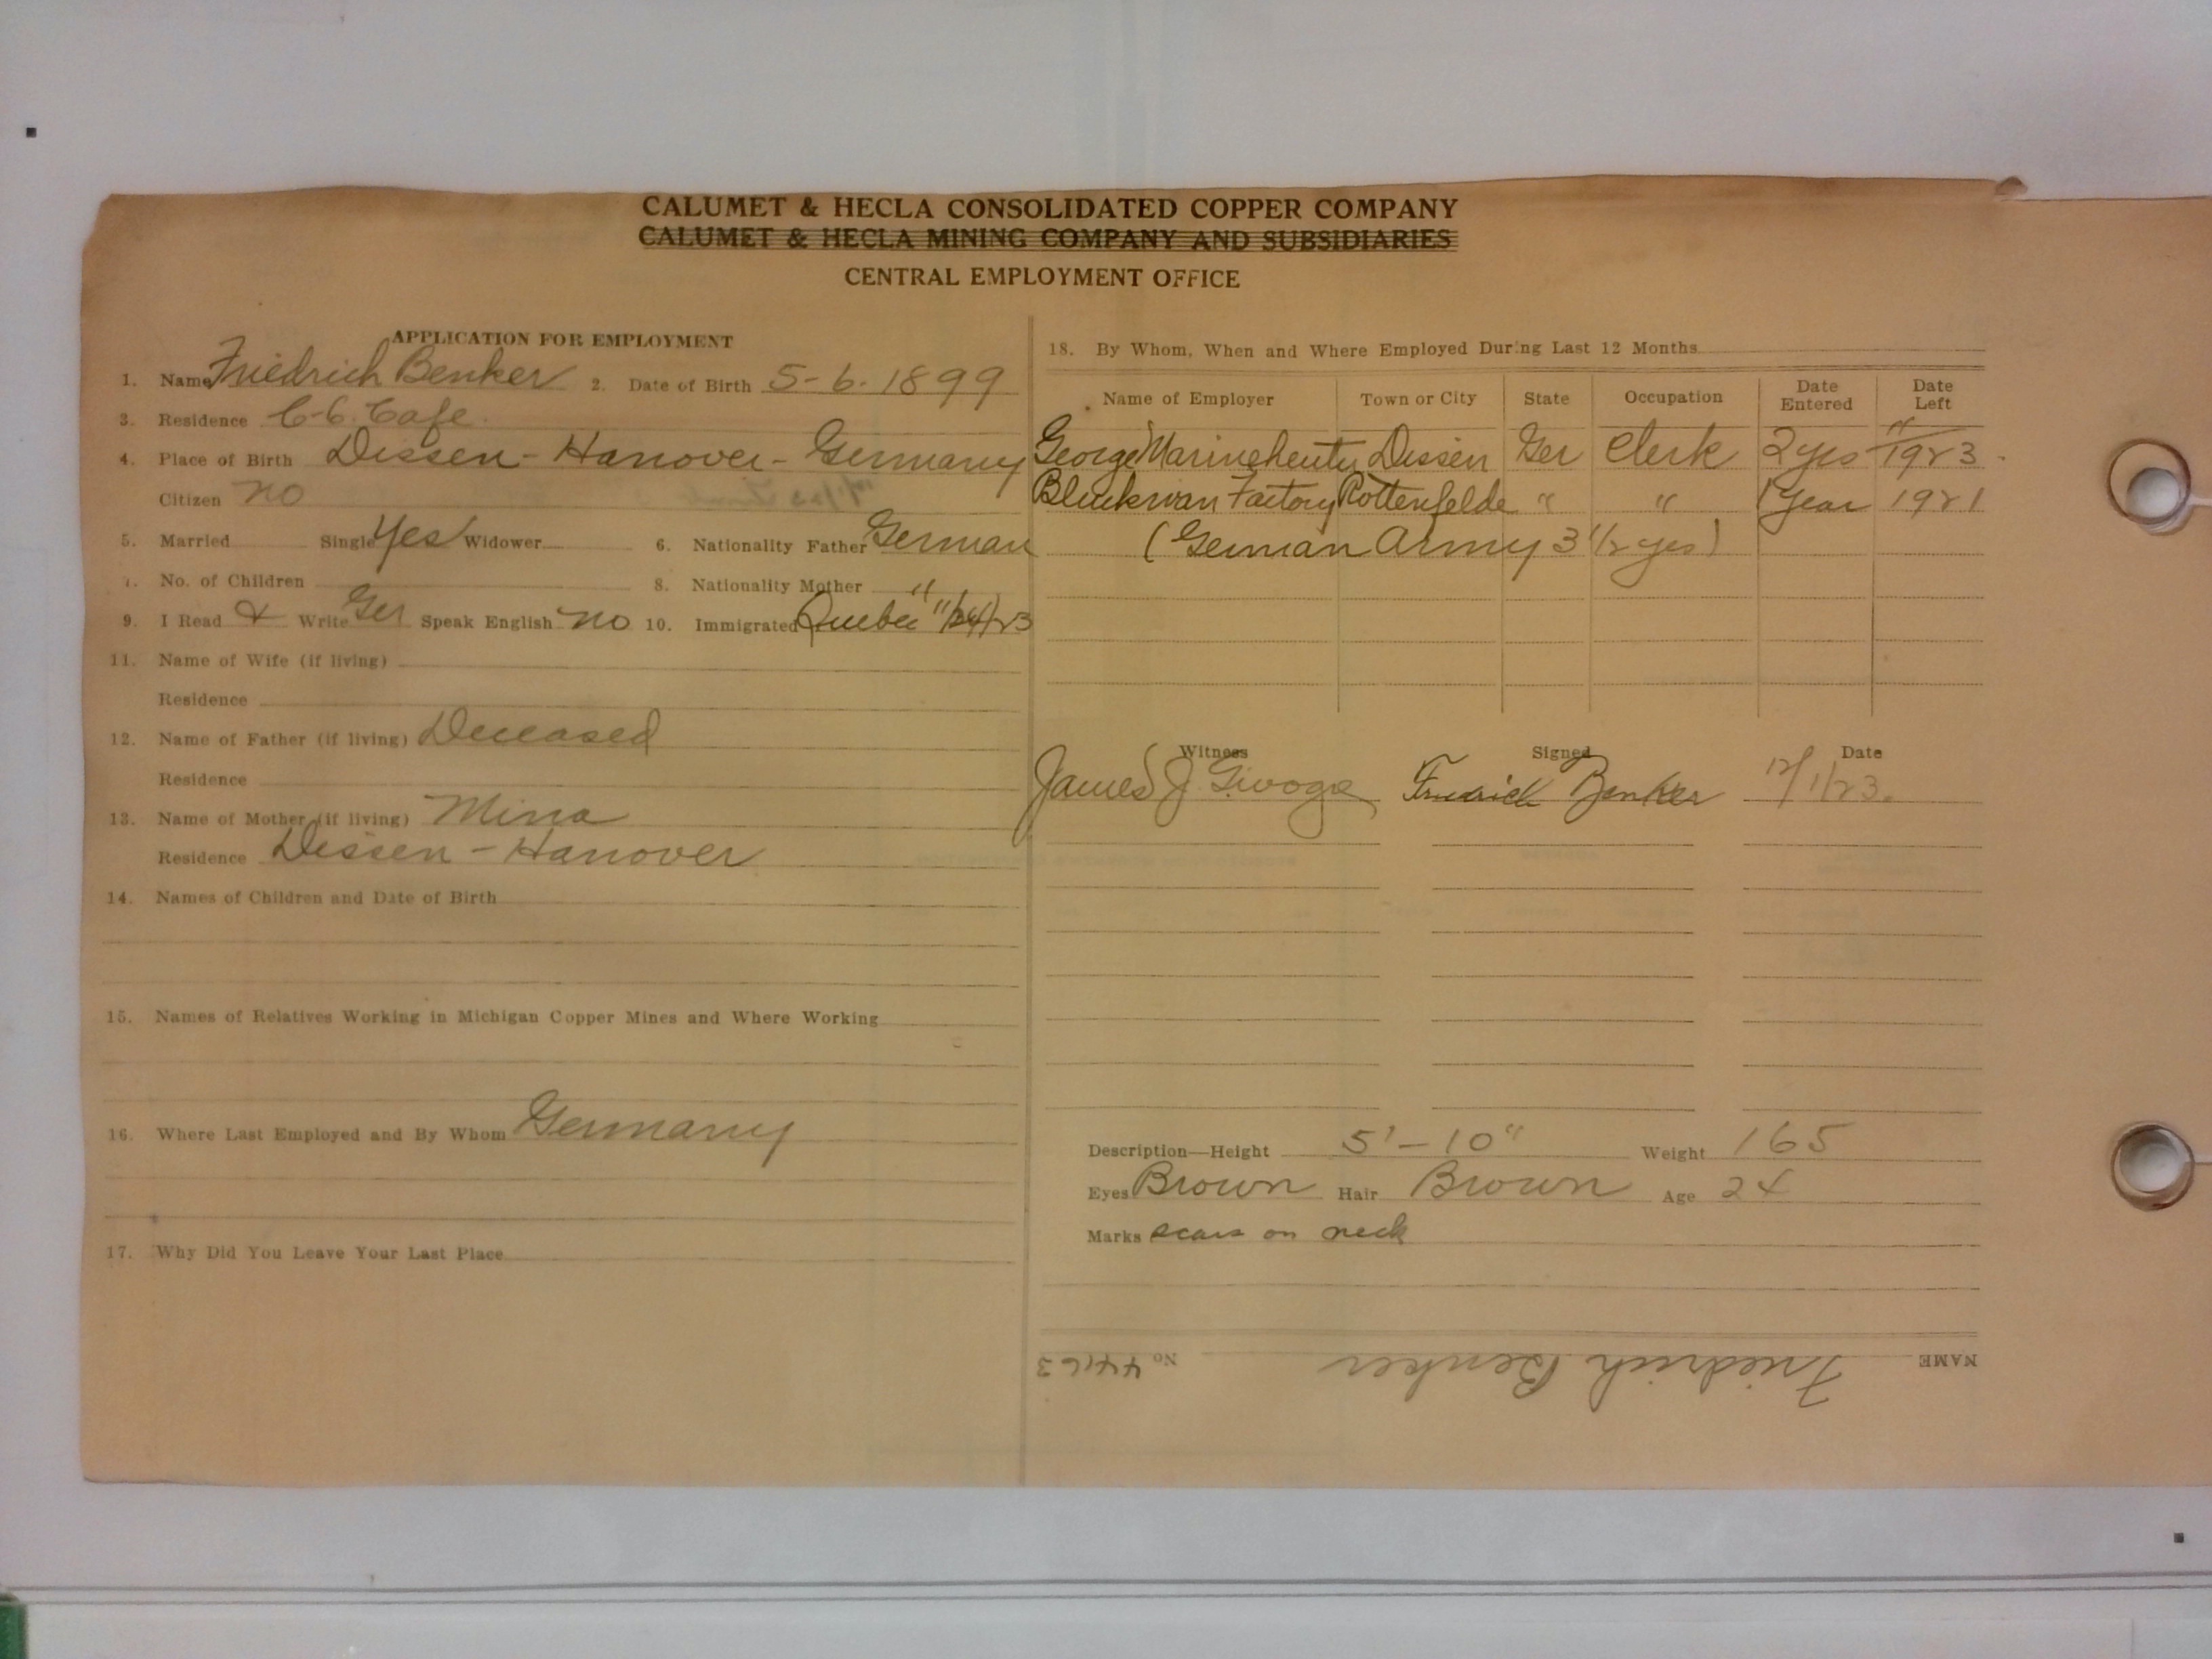 CALUMET & HECLA CONSOLIDATED COPPER COMPANY
CALUMET & HECLA MINING COMPANY AND SUBSIDIARIES
CENTRAL EMPLOYMENT OFFICE
APPLICATION FOR EMPLOYMENT
1. Name Friedrich Benker 2. Date of Birth 5-6-1899
3. Residence C-C. Cafe
4. Place of Birth Dissen - Hanover - Germany
Citizen no
5. Married Single Yes Widower 6. Nationality Father German
7. No. of Children 8. Nationality Mother "
9. I Read & Write Ger Speak English no 10. Immigrated Quebec 11/24/23
11. Name of Wife (if living)
Residence
12. Name of Father (if living) Deceased
Residence
13. Name of Mother (if living) Mina
Residence Dissen - Hanover
14. Names of Children and Date of Birth
15. Names of Relatives Working in Michigan Copper Mines and Where Working
16. Where Last Employed and By Whom Germany
17. Why Did You Leave Your Last Place
18. By Whom, When and Where Employed During Last 12 Months
Name of Employer Town or City State Occupation Date Entered Date Left
George Dissen Ger Clerk 2 yrs 11/1923
Factory Rottenfelde " " 1 Year 1921
(German Army 3 1/2 yrs)
Witness Signed Date
James J. Friedrich Benker 12/1/23.
Description—Height 5'-10" Weight 165
Eyes Brown Hair Brown Age 24
Marks scars on neck
NAME Friedrich Benker No 44163